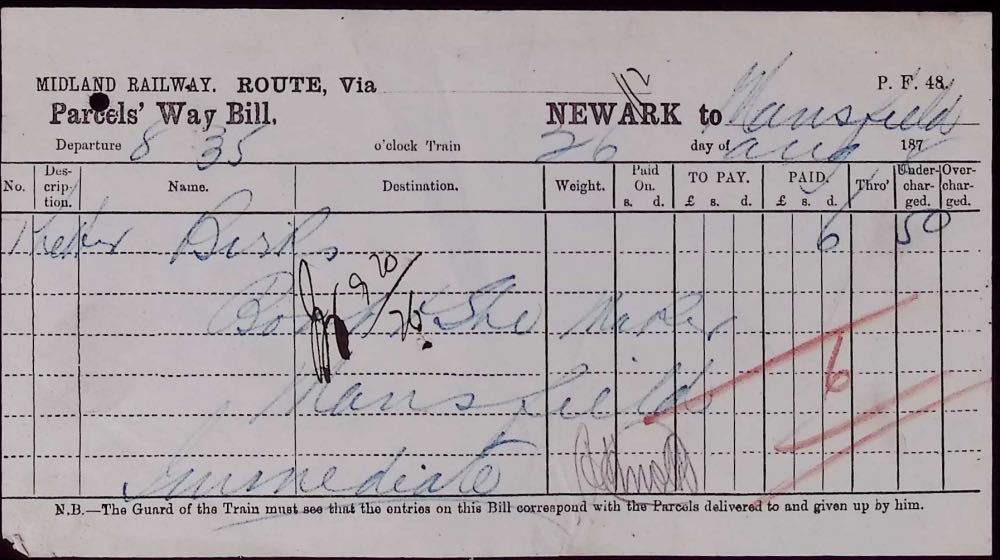 MIDLAND RAILWAY. ROUTE, Via 112 P. F. 48.
Parcels' Way Bill. NEWARK to Mansfield
Departure 8 35 o'clock Train 26 day of Aug 187
No. Des-crip-tion. Name. Destination. Weight. Paid On. s. d. TO PAY. £ s. d. PAID. £ s. d. Thro' Under-char-ged. Over-char-ged.
Dirks 6 50
9 20
Boot & Shoe Maker
76 6
Mansfield
Immediate
N.B.—The Guard of the Train must see that the entries on this Bill correspond with the Parcels delivered to and given up by him.